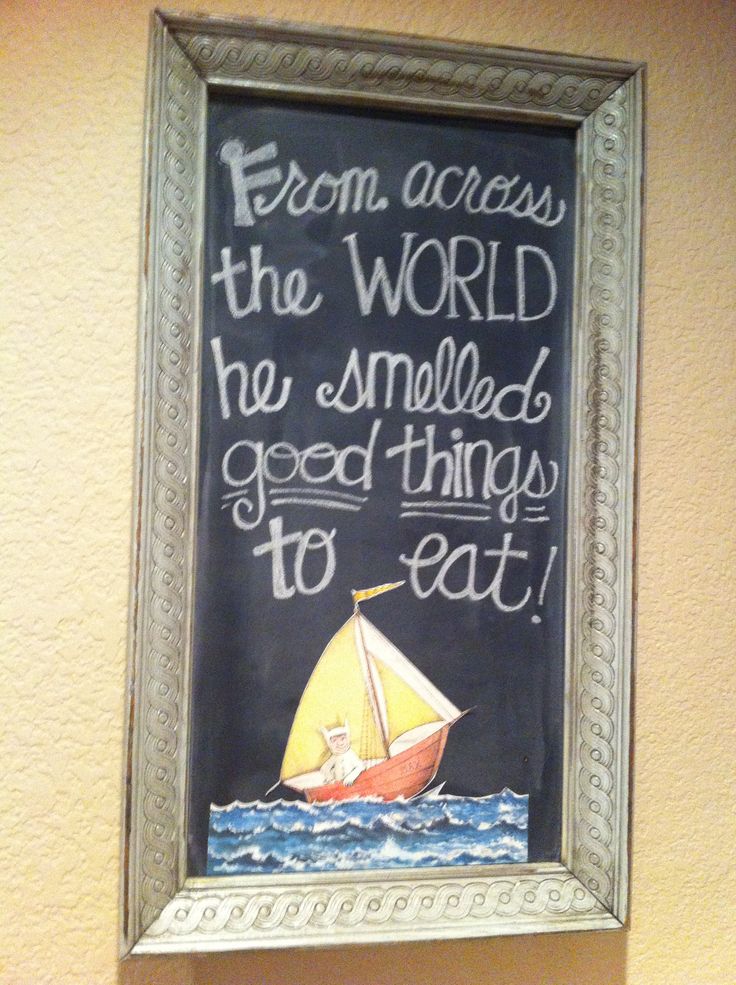 From across
the WORLD
he smelled
good things
to eat!
MAX